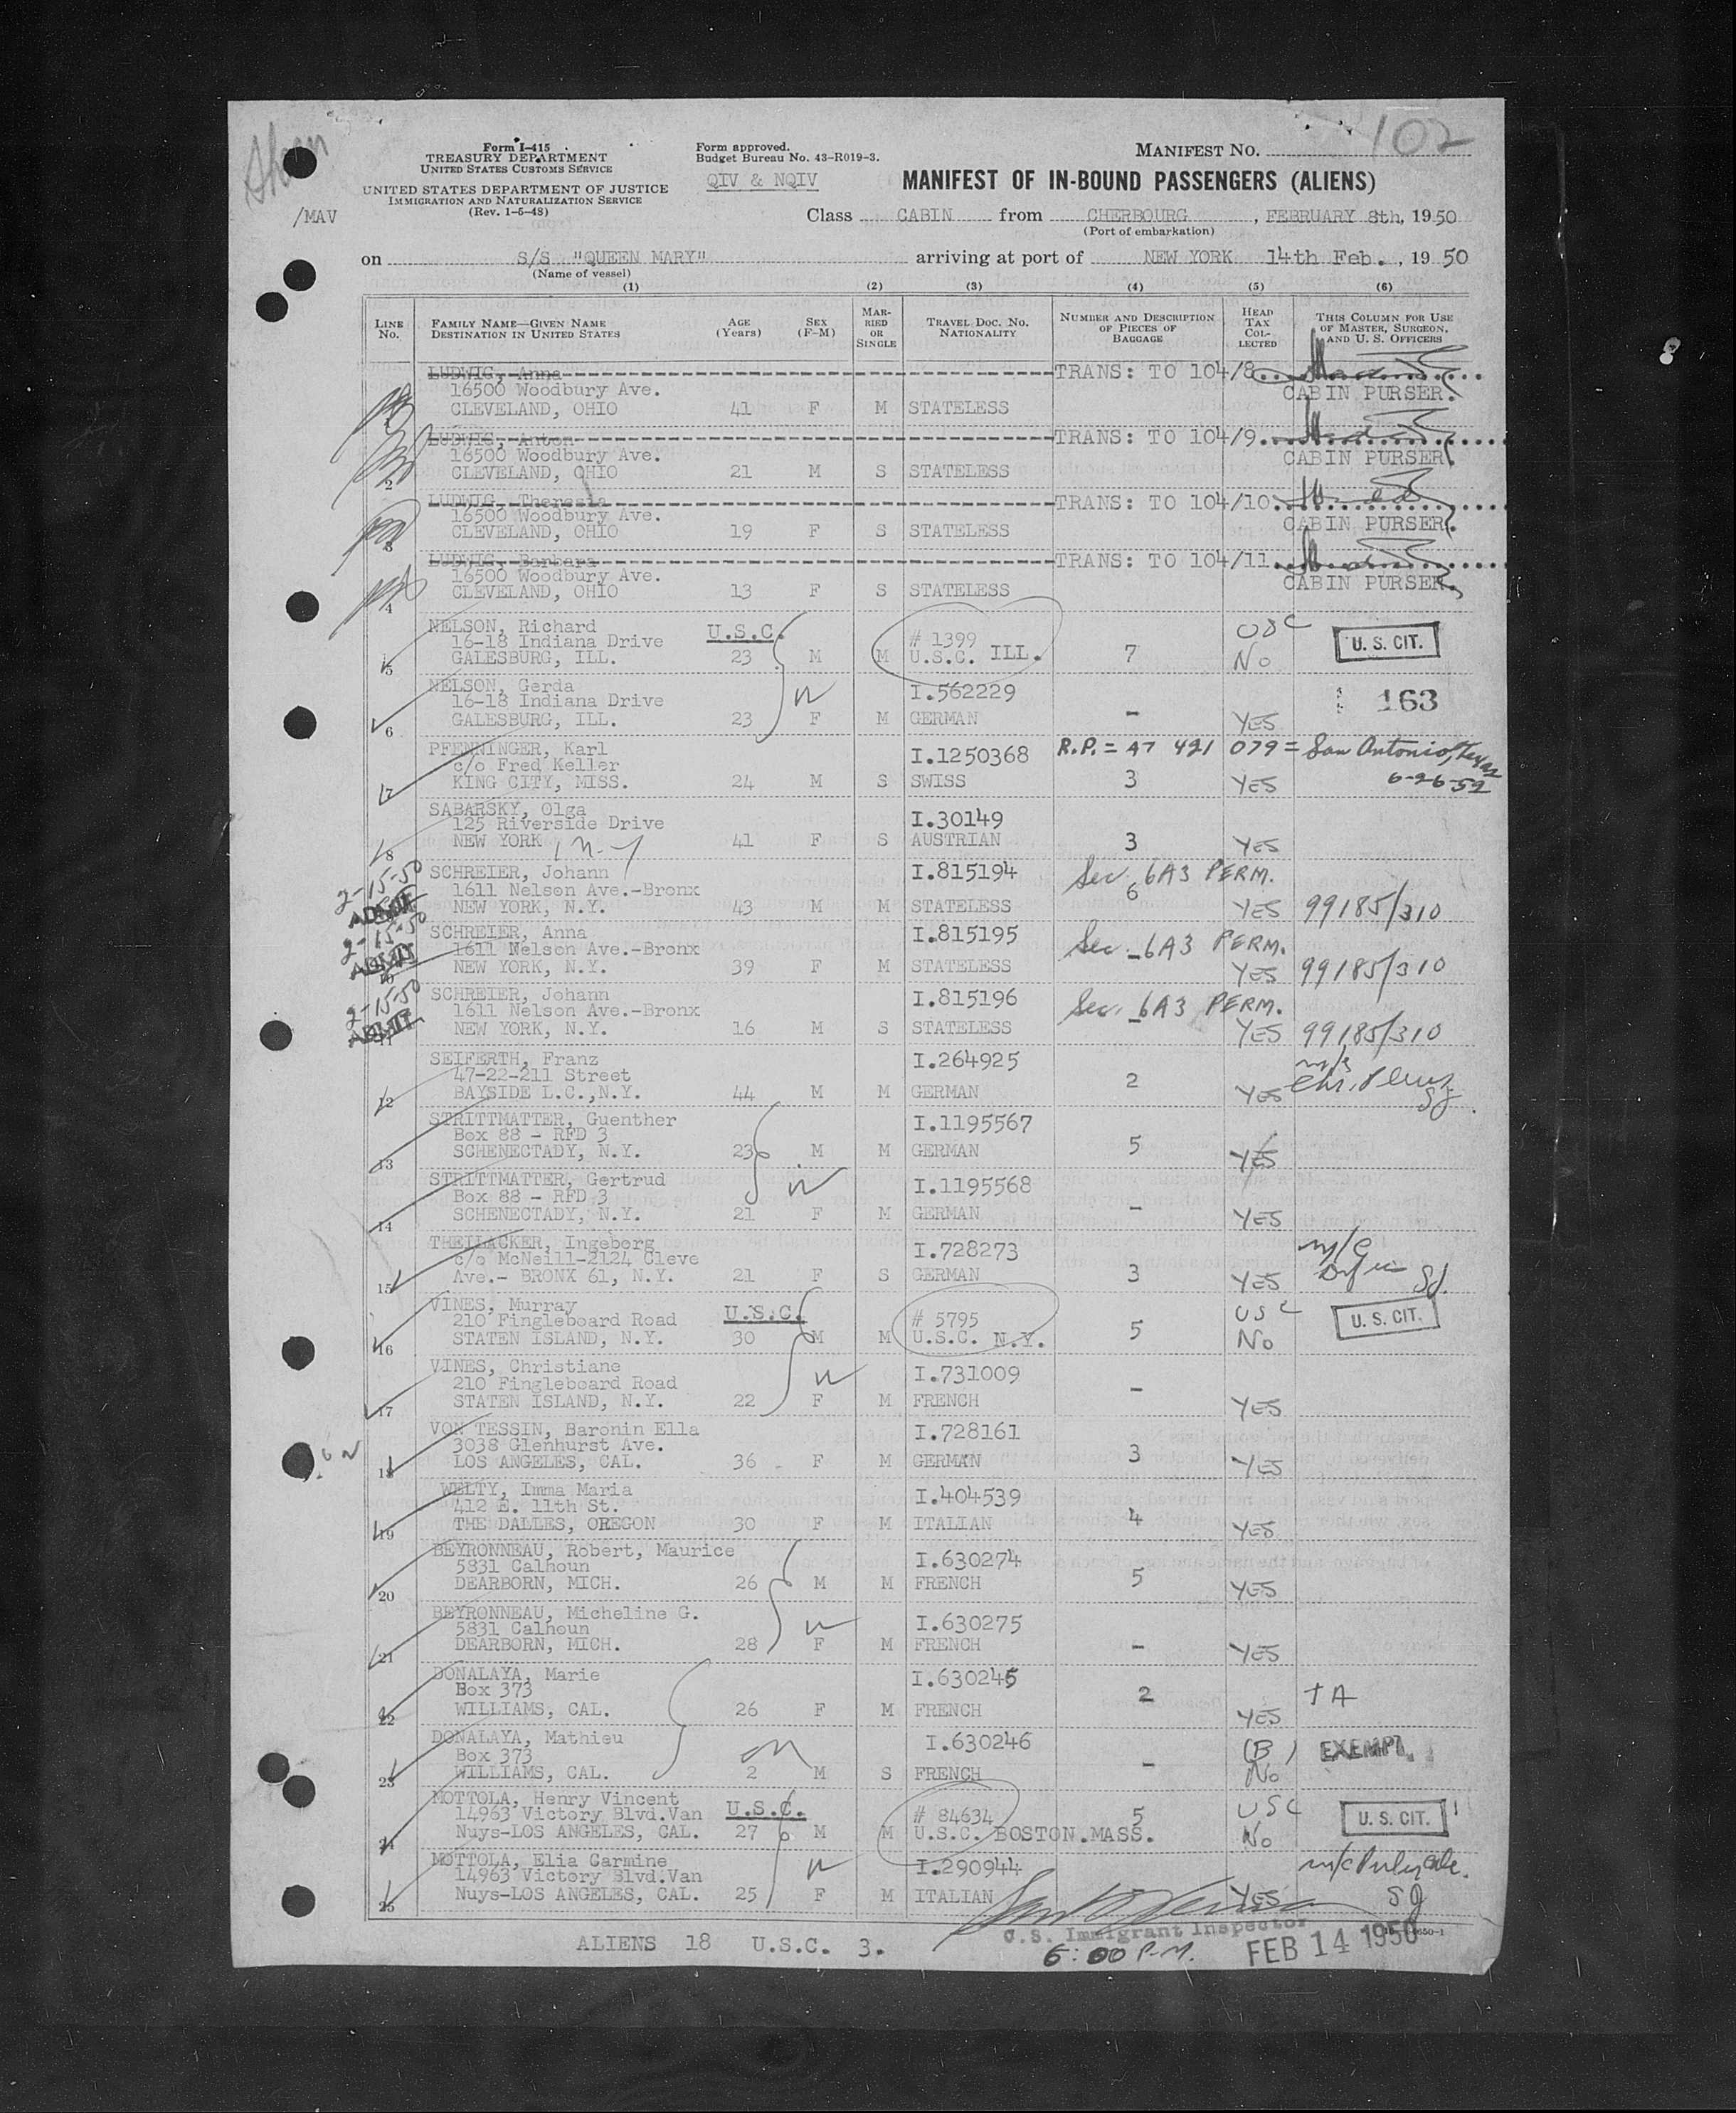 102
Form I-415
TREASURY DEPARTMENT
UNITED STATES CUSTOMS SERVICE
UNITED STATES DEPARTMENT OF JUSTICE
IMMIGRATION AND NATURALIZATION SERVICE
(Rev. 1-5-48)
/MAV
Form approved.
Budget Bureau No. 43-R019-3.
QIV & NQIV
MANIFEST NO.
MANIFEST OF IN-BOUND PASSENGERS (ALIENS)
Class CABIN from CHERBOURG, FEBRUARY 8th, 1950
(Port of embarkation)
on S/S "QUEEN MARY" arriving at port of NEW YORK 14th Feb., 1950
(Name of vessel)
(1) (2) (3) (4) (5) (6)
LINE No. FAMILY NAME—GIVEN NAME DESTINATION IN UNITED STATES AGE (Years) SEX (F-M) MARRIED OR SINGLE TRAVEL DOC. NO. NATIONALITY NUMBER AND DESCRIPTION OF PIECES OF BAGGAGE HEAD TAX COLLECTED THIS COLUMN FOR USE OF MASTER, SURGEON, AND U. S. OFFICERS
LUDWIG, Anna TRANS: TO 104/8
16500 Woodbury Ave. CABIN PURSER.
CLEVELAND, OHIO 41 F M STATELESS
LUDWIG, Anton TRANS: TO 104/9
16500 Woodbury Ave. CABIN PURSER.
2 CLEVELAND, OHIO 21 M S STATELESS
LUDWIG, Theresia TRANS: TO 104/10
16500 Woodbury Ave. CABIN PURSER.
3 CLEVELAND, OHIO 19 F S STATELESS
LUDWIG, Barbara TRANS: TO 104/11
16500 Woodbury Ave. CABIN PURSER.
4 CLEVELAND, OHIO 13 F S STATELESS
NELSON, Richard U.S.C. # 1399 USC
16-18 Indiana Drive U. S. CIT.
5 GALESBURG, ILL. 23 M M U.S.C. ILL. 7 No
NELSON, Gerda I.562229 163
16-18 Indiana Drive
6 GALESBURG, ILL. 23 F M GERMAN - YES
PFENNINGER, Karl I.1250368 R.P. = A7 421 079 = San Antonio, Texas
c/o Fred Keller 6-26-52
7 KING CITY, MISS. 24 M S SWISS 3 YES
SABARSKY, Olga I.30149
125 Riverside Drive
8 NEW YORK, N.Y. 41 F S AUSTRIAN 3 YES
2-15-50 SCHREIER, Johann I.815194 Sec. 6A3 PERM.
1611 Nelson Ave.-Bronx 6
ADMIT NEW YORK, N.Y. 43 M M STATELESS YES 99185/310
2-15-50 SCHREIER, Anna I.815195 Sec. 6A3 PERM.
ADMIT 1611 Nelson Ave.-Bronx -
10 NEW YORK, N.Y. 39 F M STATELESS YES 99185/310
2-15-50 SCHREIER, Johann I.815196 Sec. 6A3 PERM.
ADMIT 1611 Nelson Ave.-Bronx -
11 NEW YORK, N.Y. 16 M S STATELESS YES 99185/310
SEIFERTH, Franz I.264925
47-22-211 Street 2
12 BAYSIDE L.C.,N.Y. 44 M M GERMAN YES
STRITTMATTER, Guenther I.1195567
Box 88 - RFD 3
13 SCHENECTADY, N.Y. 23 M M GERMAN 5 YES
STRITTMATTER, Gertrud I.1195568
Box 88 - RFD 3
14 SCHENECTADY, N.Y. 21 F M GERMAN - YES
THEILACKER, Ingeborg I.728273
c/o McNeill-2124 Cleve
15 Ave.- BRONX 61, N.Y. 21 F S GERMAN 3 YES
VINES, Murray U.S.C. # 5795 USC
210 Fingleboard Road U. S. CIT.
16 STATEN ISLAND, N.Y. 30 M M U.S.C. N.Y. 5 No
VINES, Christiane I.731009
210 Fingleboard Road
17 STATEN ISLAND, N.Y. 22 F M FRENCH - YES
VON TESSIN, Baronin Ella I.728161
3038 Glenhurst Ave.
18 LOS ANGELES, CAL. 36 F M GERMAN 3 YES
WELTY, Imma Maria I.404539
412 E. 11th St.
19 THE DALLES, OREGON 30 F M ITALIAN 4 YES
BEYRONNEAU, Robert, Maurice I.630274
5831 Calhoun
20 DEARBORN, MICH. 26 M M FRENCH 5 YES
BEYRONNEAU, Micheline G. I.630275
5831 Calhoun
21 DEARBORN, MICH. 28 F M FRENCH - YES
DONALAYA, Marie I.630245
Box 373 2 TA
22 WILLIAMS, CAL. 26 F M FRENCH YES
DONALAYA, Mathieu I.630246
Box 373 (B) EXEMPT.
23 WILLIAMS, CAL. 2 M S FRENCH - No
MOTTOLA, Henry Vincent U.S.C. # 84634 5 USC
14963 Victory Blvd.Van U. S. CIT.
24 Nuys-LOS ANGELES, CAL. 27 M M U.S.C. BOSTON.MASS. No
MOTTOLA, Elia Carmine I.290944
14963 Victory Blvd.Van
25 Nuys-LOS ANGELES, CAL. 25 F M ITALIAN - YES SJ
ALIENS 18 U.S.C. 3.
U.S. Immigrant Inspector
6:00 P.M. FEB 14 1950